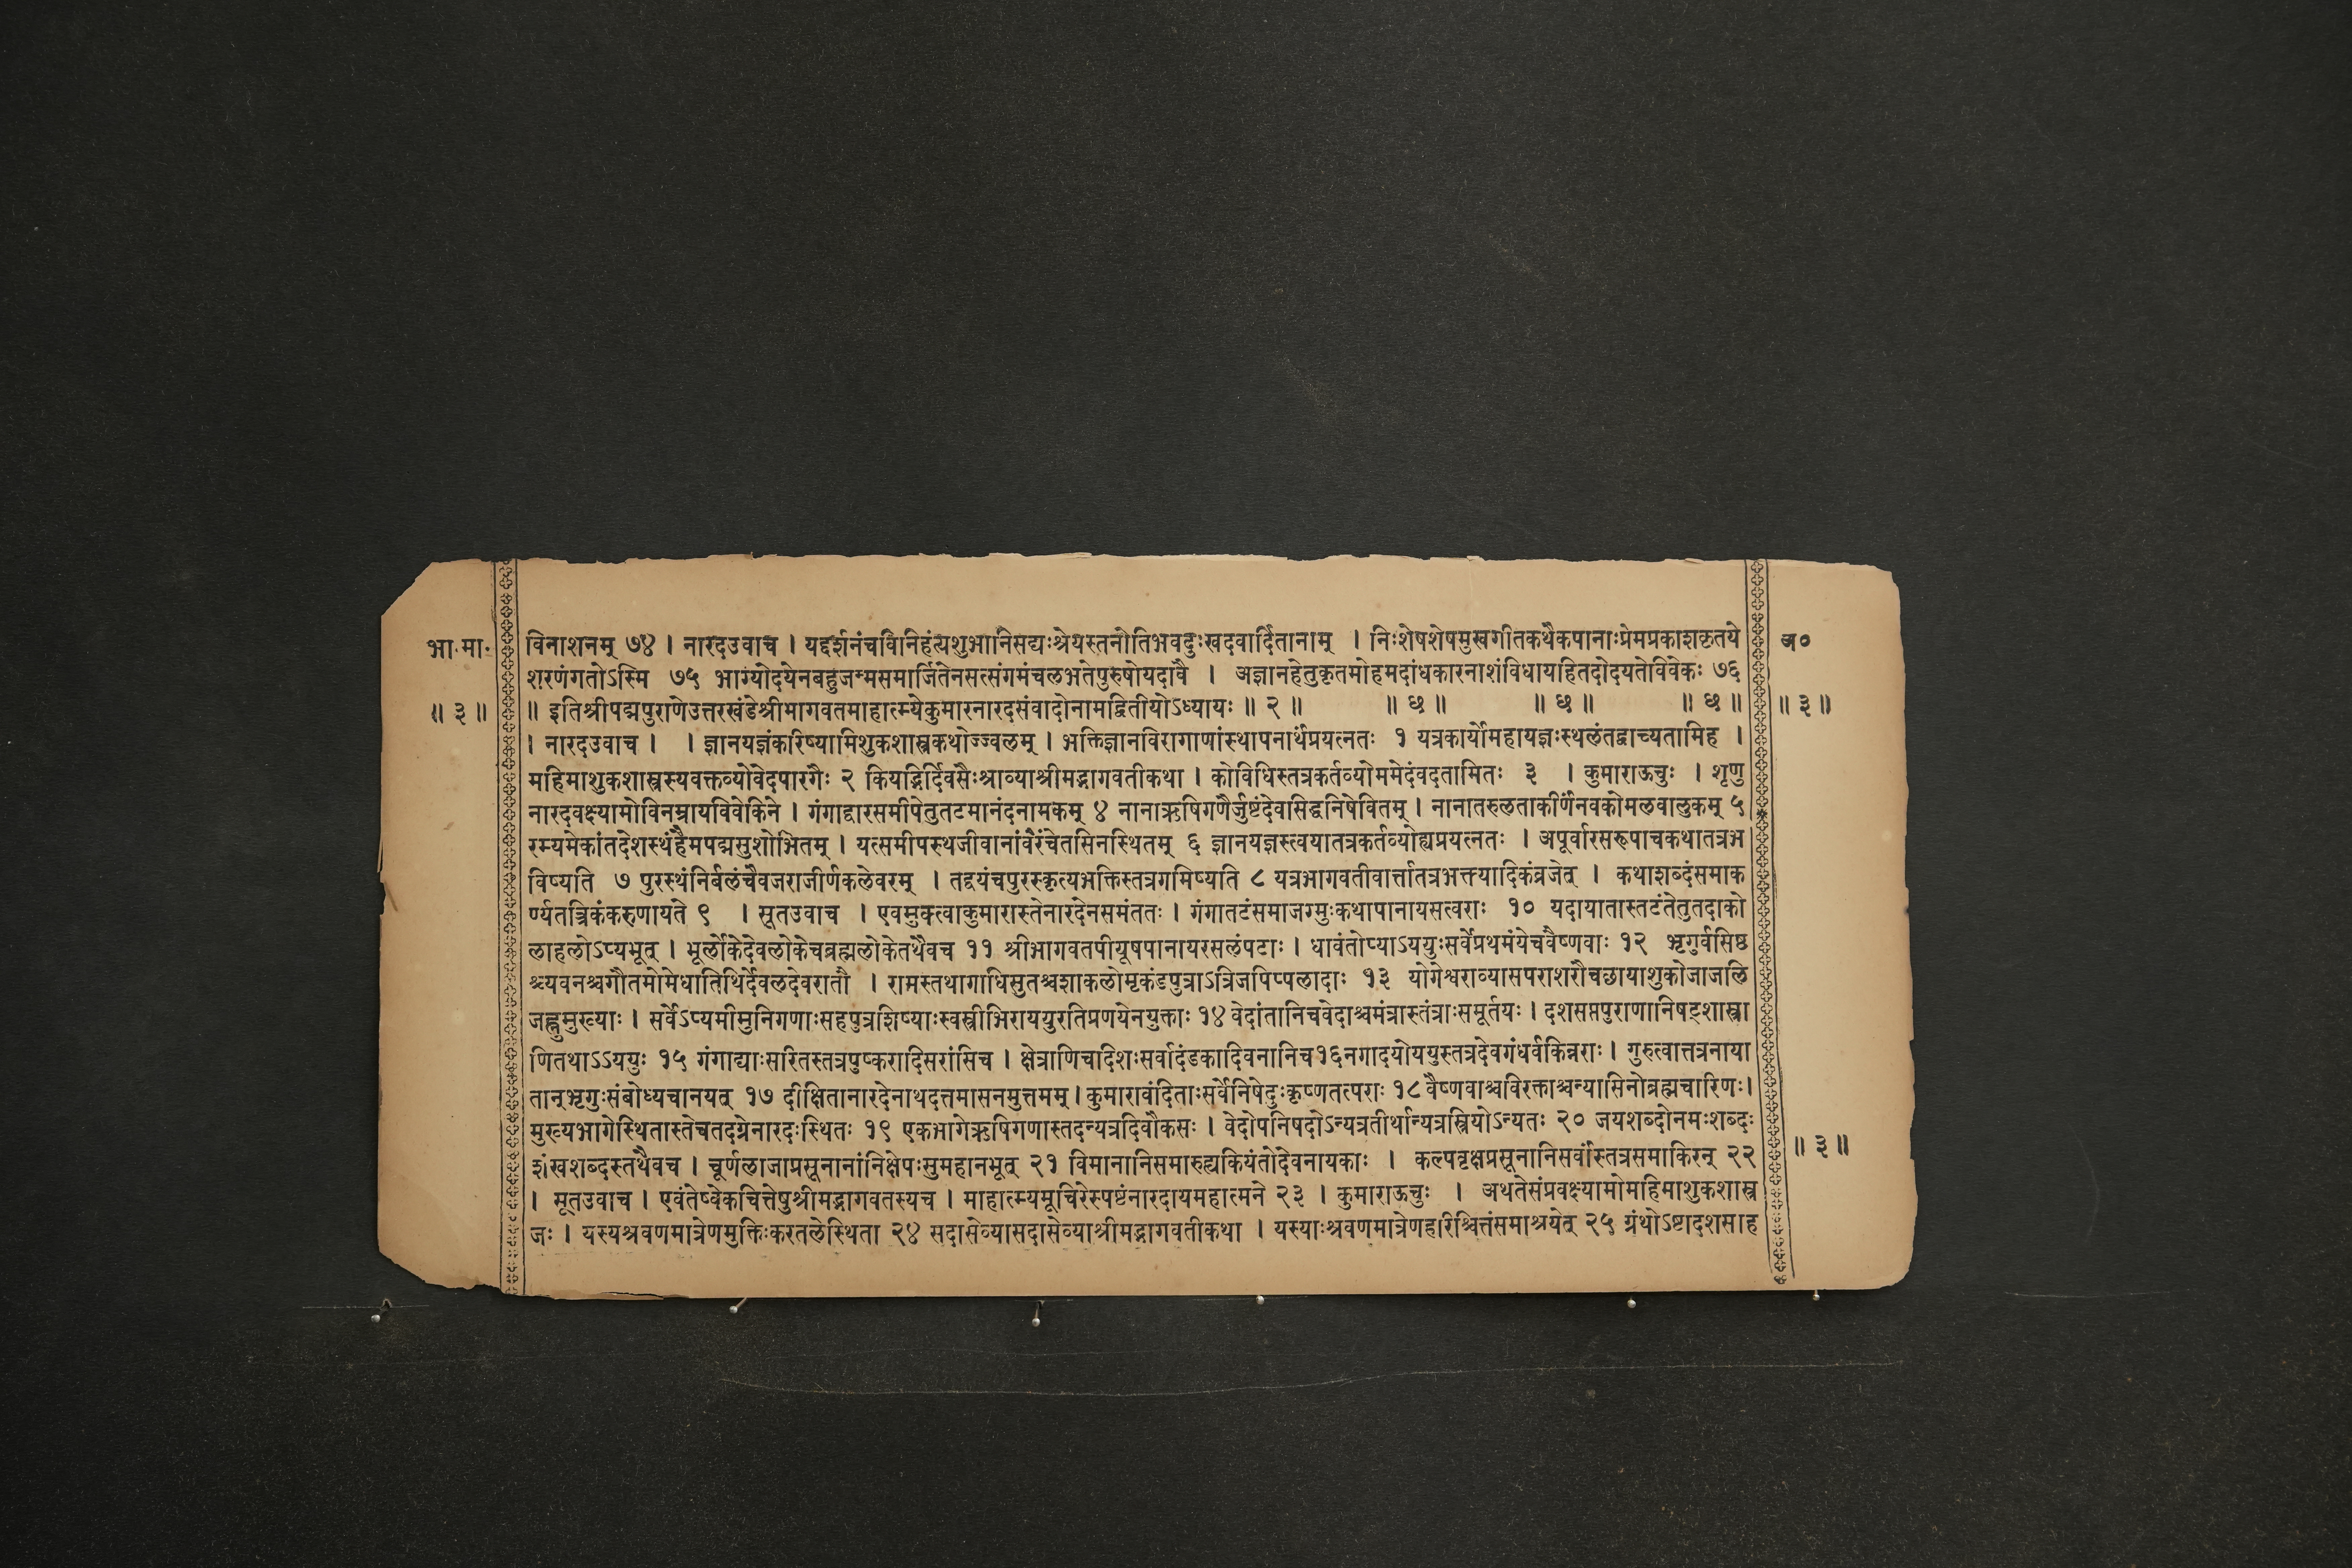 भा·मा· विनाशनम् ७४ । नारदउवाच । यद्दर्शनंचविनिहंत्यशुभानिसद्यःश्रेयस्तनोतिभवदुःखदवार्दितानाम् । निःशेषशेषमुखगीतकथैकपानाःप्रेमप्रकाशकृतये अ०
शरणंगतोऽस्मि ७५ भाग्योदयेनबहुजन्मसमार्जितेनसत्संगमंचलभतेपुरुषोयदावै । अज्ञानहेतुकृतमोहमदांधकारनाशंविधायहितदोदयतेविवेकः ७६
॥ ३ ॥ ॥ इतिश्रीपद्मपुराणेउत्तरखंडेश्रीमागवतमाहात्म्येकुमारनारदसंवादोनामद्वितीयोऽध्यायः ॥ २ ॥ ॥ ७ ॥ ॥ ७ ॥ ॥ ७ ॥ ॥ ३ ॥
। नारदउवाच । । ज्ञानयज्ञंकरिष्यामिशुकशास्त्रकथोज्ज्वलम् । भक्तिज्ञानविरागाणांस्थापनार्थंप्रयत्नतः १ यत्रकार्योमहायज्ञःस्थलंतद्वाच्यतामिह ।
महिमाशुकशास्त्रस्यवक्तव्योवेदपारगैः २ कियद्भिर्दिवसैःश्राव्याश्रीमद्भागवतीकथा । कोविधिस्तत्रकर्तव्योममेदंवदतामितः ३ । कुमाराऊचुः । शृणु
नारदवक्ष्यामोविनम्रायविवेकिने । गंगाद्वारसमीपेतुतटमानंदनामकम् ४ नानाऋषिगणैर्जुष्टंदेवसिद्धनिषेवितम् । नानातरुलताकीर्णंनवकोमलवालुकम् ५
रम्यमेकांतदेशस्थंहैमपद्मसुशोभितम् । यत्समीपस्थजीवानांवैरंचेतसिनस्थितम् ६ ज्ञानयज्ञस्त्वयातत्रकर्तव्योह्यप्रयत्नतः । अपूर्वारसरूपाचकथातत्रभ
विष्यति ७ पुरस्थंनिर्बलंचैवजराजीर्णकलेवरम् । तद्द्वयंचपुरस्कृत्यभक्तिस्तत्रगमिष्यति ८ यत्रभागवतीवार्त्तातत्रभक्त्यादिकंव्रजेत् । कथाशब्दंसमाक
र्ण्यतत्त्रिकंकरुणायते ९ । सूतउवाच । एवमुक्त्वाकुमारास्तेनारदेनसमंततः । गंगातटंसमाजग्मुःकथापानायसत्वराः १० यदायातास्तटंतेतुतदाको
लाहलोऽप्यभूत् । भूर्लोकेदेवलोकेचब्रह्मलोकेतथैवच ११ श्रीभागवतपीयूषपानायरसलंपटाः । धावंतोप्याऽययुःसर्वेप्रथमंयेचवैष्णवाः १२ भृगुर्वसिष्ठ
श्च्यवनश्चगौतमोमेधातिथिर्देवलदेवरातौ । रामस्तथागाधिसुतश्चशाकलोमृकंडपुत्राऽत्रिजपिप्पलादाः १३ योगेश्वराव्यासपराशरौचछायाशुकोजाजलि
जह्नुमुख्याः । सर्वेऽप्यमीमुनिगणाःसहपुत्रशिष्याःस्वस्त्रीभिराययुरतिप्रणयेनयुक्ताः १४ वेदांतानिचवेदाश्चमंत्रास्तंत्राःसमूर्तयः । दशसप्तपुराणानिषट्शास्त्रा
णितथाऽऽययुः १५ गंगाद्याःसरितस्तत्रपुष्करादिसरांसिच । क्षेत्राणिचदिशःसर्वादंडकादिवनानिच१६नगादयोययुस्तत्रदेवगंधर्वकिन्नराः । गुरुत्वात्तत्रनाया
तान्भृगुःसंबोध्यचानयत् १७ दीक्षितानारदेनाथदत्तमासनमुत्तमम् । कुमारावंदिताःसर्वेनिषेदुःकृष्णतत्पराः १८ वैष्णवाश्चविरक्ताश्चन्यासिनोब्रह्मचारिणः।
मुख्यभागेस्थितास्तेचतदग्रेनारदःस्थितः १९ एकभागेऋषिगणास्तदन्यत्रदिवौकसः । वेदोपनिषदोऽन्यत्रतीर्थान्यत्रस्त्रियोऽन्यतः २० जयशब्दोनमःशब्दः
शंखशब्दस्तथैवच । चूर्णलाजाप्रसूनानांनिक्षेपःसुमहानभूत् २१ विमानानिसमारुह्यकियंतोदेवनायकाः । कल्पवृक्षप्रसूनानिसर्वांस्तत्रसमाकिरन् २२ ॥ ३ ॥
। सूतउवाच । एवंतेष्वेकचित्तेषुश्रीमद्भागवतस्यच । माहात्म्यमूचिरेस्पष्टंनारदायमहात्मने २३ । कुमाराऊचुः । अथतेसंप्रवक्ष्यामोमहिमाशुकशास्त्र
जः । यस्यश्रवणमात्रेणमुक्तिःकरतलेस्थिता २४ सदासेव्यासदासेव्याश्रीमद्भागवतीकथा । यस्याःश्रवणमात्रेणहरिश्चित्तंसमाश्रयेत् २५ ग्रंथोऽष्टादशसाह